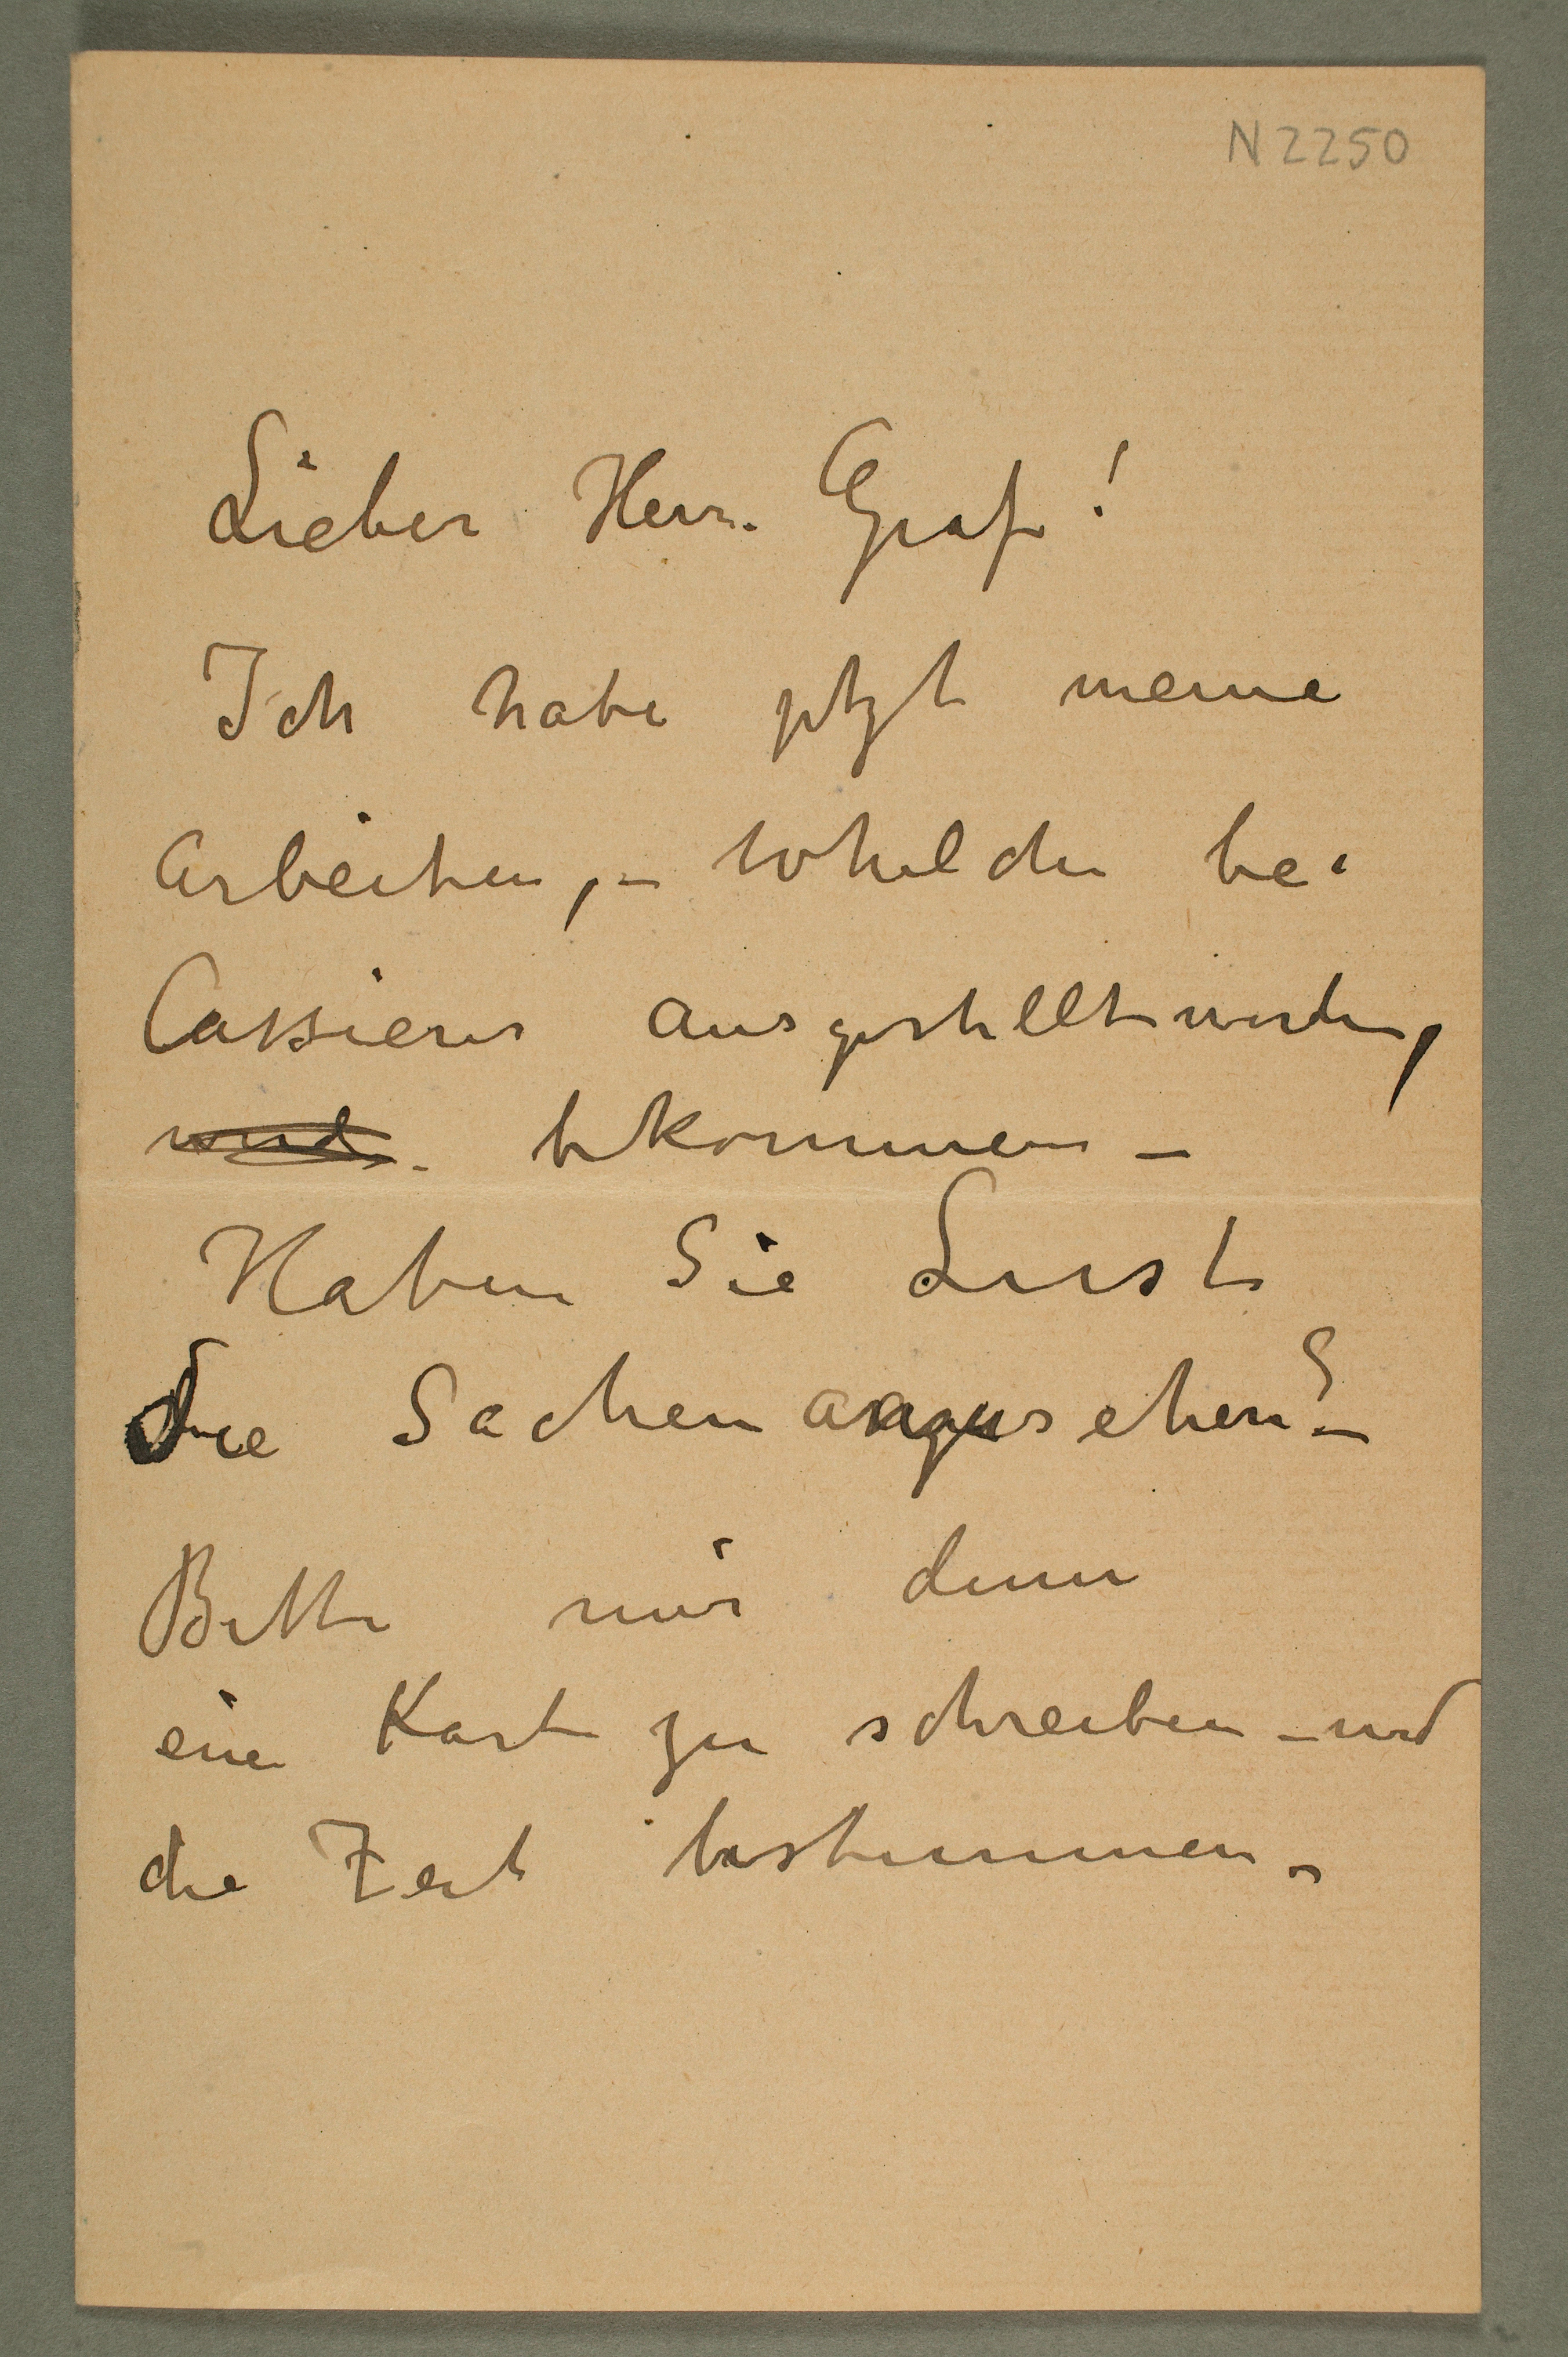 N 2250
Lieber Herr Graf!
Ich habe jetzt meine
Arbeiten, – whelche bei
Cassierer ausgestellt werden,
bekommen –
Haben Sie Lust
die Sachen anzusehen? –
Bitte mir denn
eine Karte zu schreiben – und
die Zeit bestimmen –